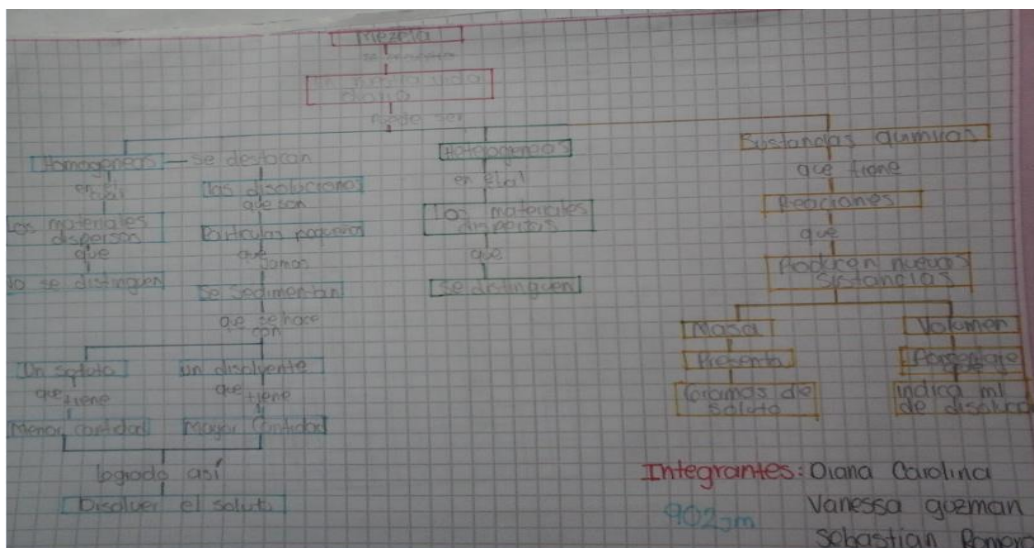 Mezcla
se encuentra
En nuestra vida
diaria
puede ser
Homogeneas
se destacan
en cual
Los materiales
dispersan
que
No se distinguen
las disoluciones
que son
Particulas pequeñas
que
Jamas
Se Sedimentan
que se hace
con
Un soluto
que
tiene
Menor cantidad
un disolvente
que
tiene
Mayor Cantidad
logrado así
Disolver el soluto
en el cual
Los materiales
que
Se distinguen
Sustancias quimicas
que tiene
Reaciones
que
nuevas
Sustancias
Masa
Presenta
Gramos de
soluto
Volumen
que
indica ml
de
Integrantes: Diana Carolina
Vanessa guzman
Sebastian Romero
902jm